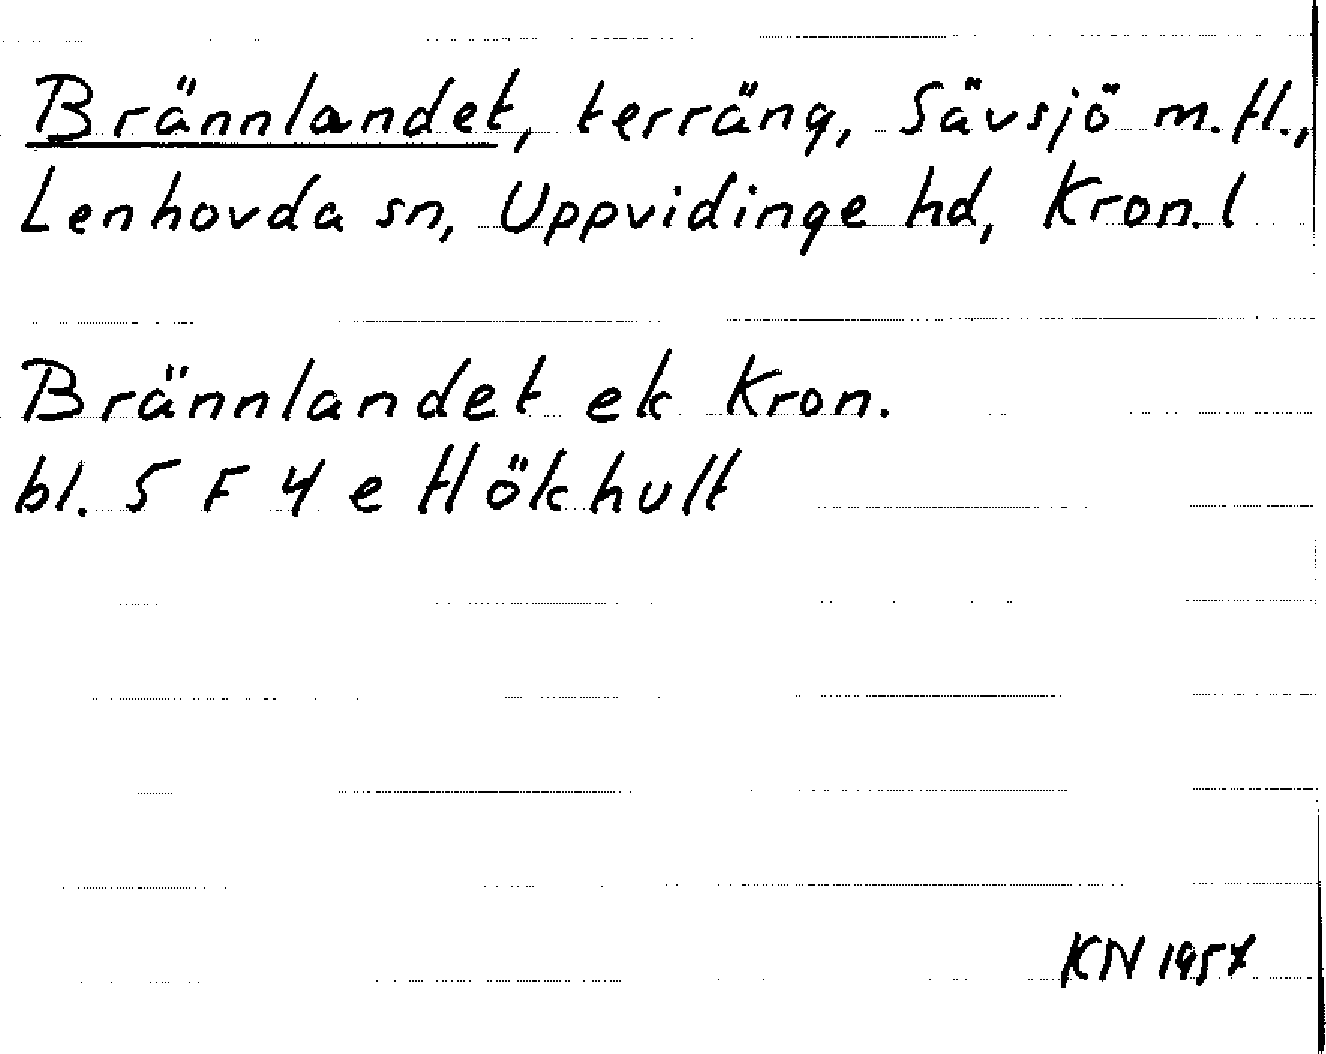 Brännlandet, terräng, Sävsjö m.fl.,
Lenhovda sn, Uppvidinge hd, Kron.l
Brännlandet ek Kron.
bl. 5 F 4 e Hökhult
KN 1957